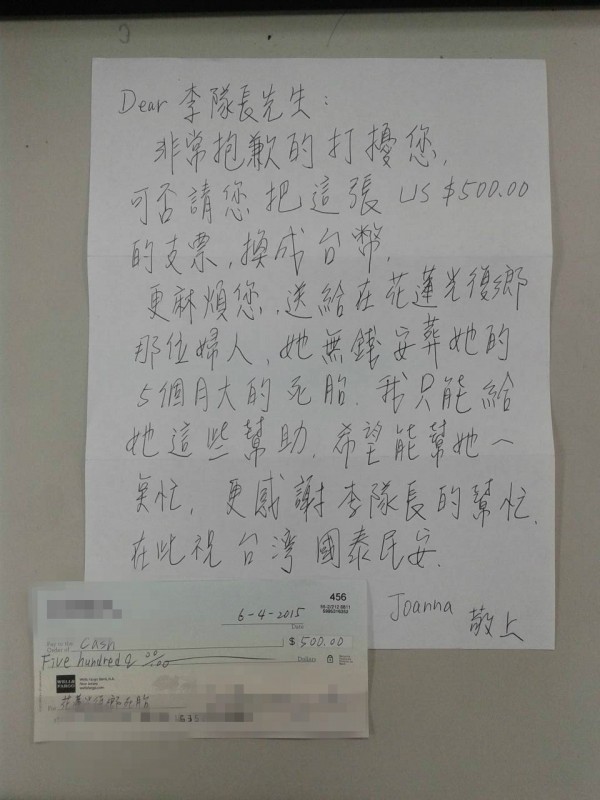 Dear 李隊長先生:
非常抱歉的打擾您,
可否請您把這張 US $500.00
的支票,換成台幣,
更麻煩您,送給在花蓮光復鄉
那位婦人,她無錢安葬她的
5個月大的死胎.我只能給
她這些幫助.希望能幫她一
些忙,更感謝李隊長的幫忙.
在此祝台湾國泰民安.
Joanna 敬上
456
6-4-2015
Date
Pay to the
Order of Cash $ 500.00
Five hundred & 00/00 Dollars
WELLS
FARGO
Wells Fargo Bank, N.A.
wellsfargo.com
For 花蓮光復鄉死胎